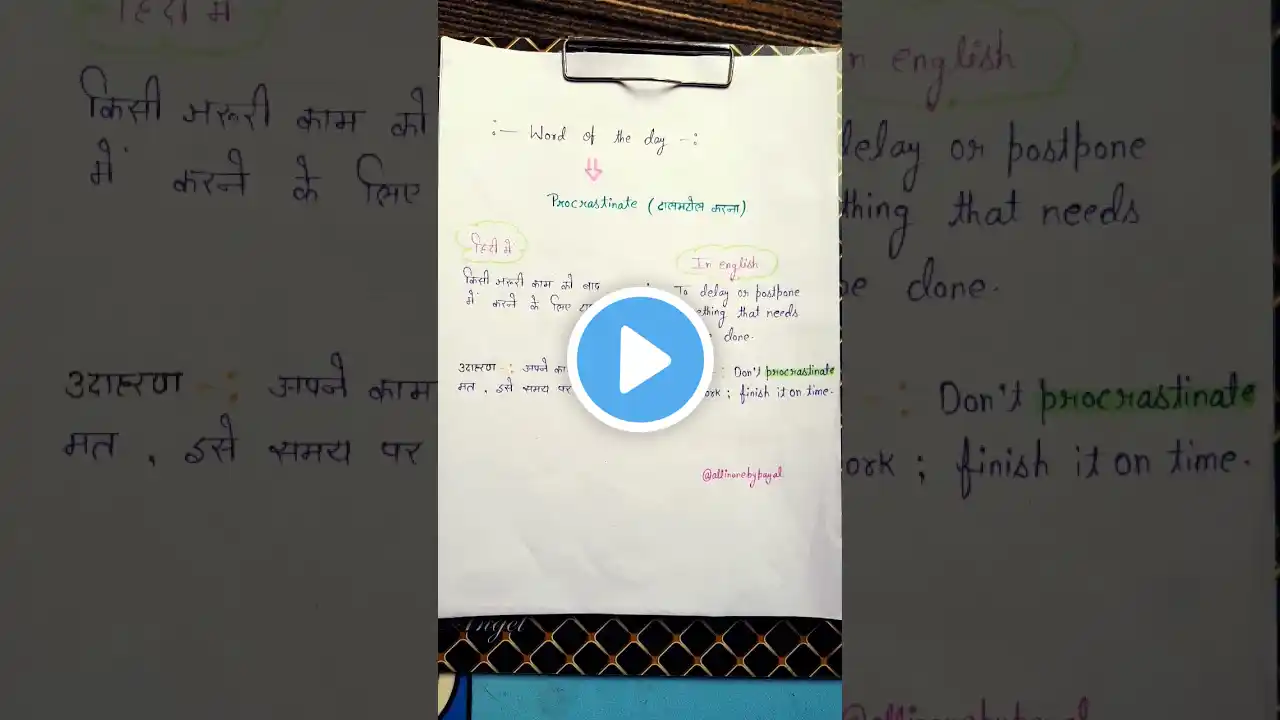 :— Word of the day —:
Procrastinate (टालमटोल करना)
हिंदी में
किसी जरूरी काम को बाद
में करने के लिए
In english
: To delay or postpone
thing that needs
done.
उदाहरण -: अपने काम
मत , इसे समय पर
-: Don't procrastinate
ork ; finish it on time.
@allinonebypayal
Angel